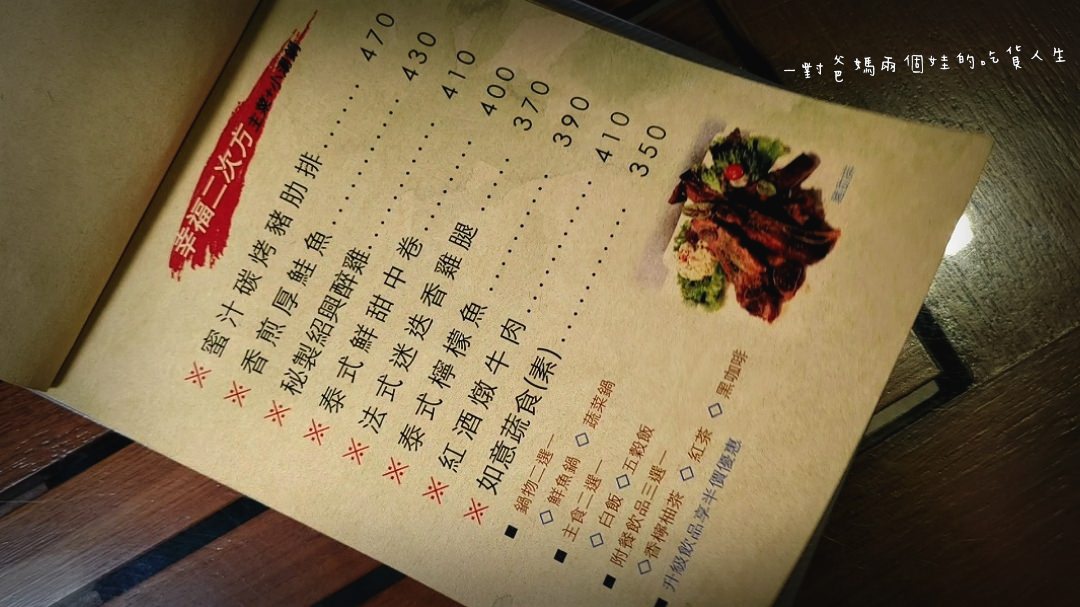 一對爸媽兩個娃的吃貨人生
幸福二次方
主菜+小湯鍋
※ 蜜汁碳烤豬肋排......470
※ 香煎厚鮭魚......430
※ 秘製紹興醉雞......410
※ 泰式鮮甜中卷......400
※ 法式迷迭香雞腿......370
※ 泰式檸檬魚......390
※ 紅酒燉牛肉......410
※ 如意蔬食(素)......350
■ 鍋物二選一
◇ 鮮魚鍋 ◇ 蔬菜鍋
■ 主食二選一
◇ 白飯 ◇ 五穀飯
■ 附餐飲品三選一
◇ 香檸柚茶 ◇ 紅茶 ◇ 黑咖啡
■ 升級飲品享半價優惠